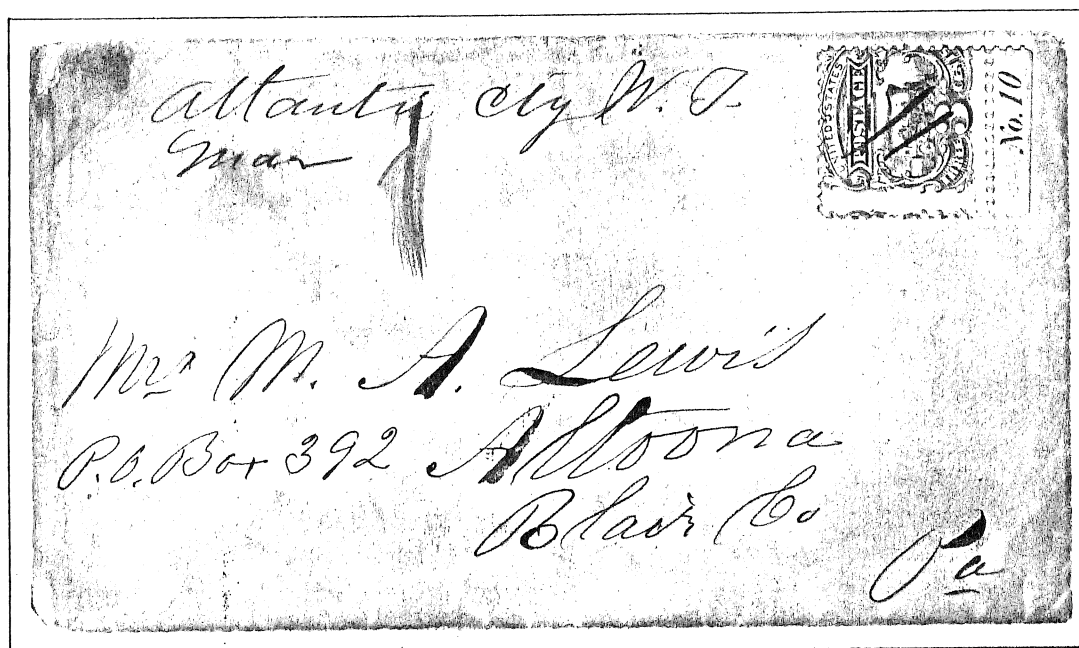 Atlantic City W. T.
Mar
UNITED STATES
POSTAGE
3
No. 10
Mrs M. A. Lewis
P.O. Box 392 Altoona
Blair Co
Pa